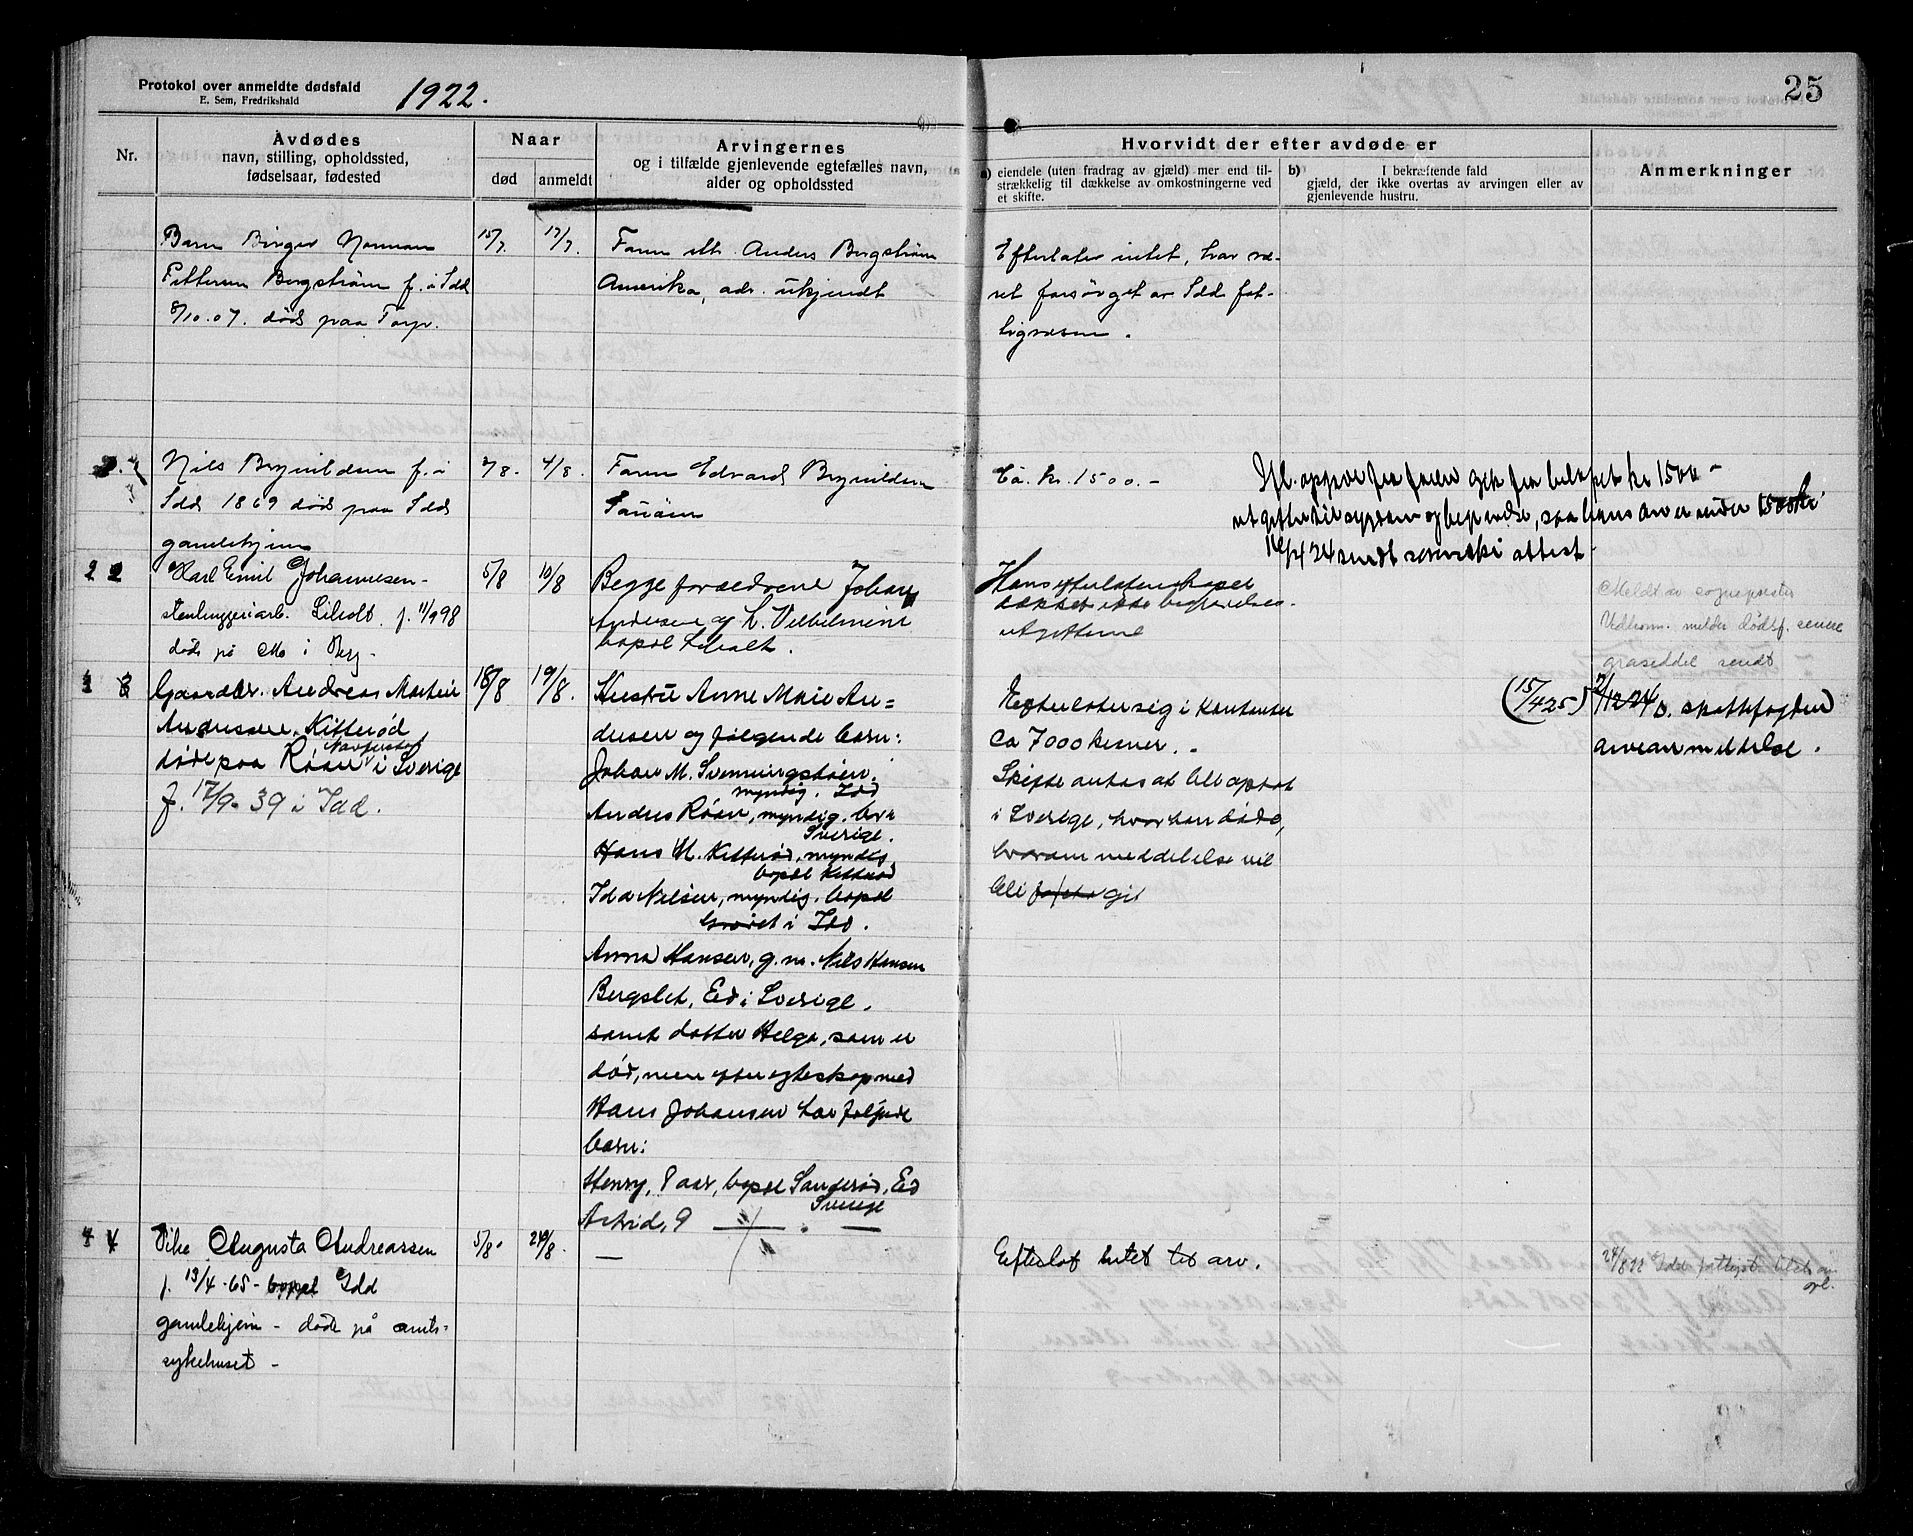 Protokol over anmeldte dødsfald
E. Sem, Fredrikshald
1922.
25
Nr.
Avdødes
navn, stilling, opholdssted,
fødselsaar, fødested
Naar
død
anmeldt
Arvingernes
og i tilfælde gjenlevende egtefælles navn,
alder og opholdssted
Hvorvidt der efter avdøde er
a) eiendele (uten fradrag av gjæld) mer end til-
strækkelig til dækkelse av omkostningerne ved
et skifte.
b) I bekræftende fald
gjæld, der ikke overtas av arvingen eller av
gjenlevende hustru.
Anmerkninger
Barn Birger Norman
Pettersen Bergstrøm f. i Idd
8/10.07. død paa Torp.
15/7
17/7.
Faren Anders Bergstrøm
Amerika, adr. ukjendt
Efterlater intet, har væ-
ret forsørget av Idd fat-
tigvæsen.
Nils Brynildsen f. i
Idd 1869 død paa Idd
gamlehjem
2/8.
4/8.
Faren Edvard Brynildsen
Ca. kr. 1500.-
Ifl. opgave fra faren gik fra beløpet kr 1500-
utgifter til sygdom og begravelse, saa hans arv er under 1500 kr.
16/4 24 sendt attest
2 2
Karl Emil Johannesen
stenhuggeriarb. Liholt. f. 11/9 98
døde på Mo i Berg.
5/8
10/8
Begge forældrene Johan
Andersen og L. Vilhelmine
bopæl Liholt.
Hans efterlatenskaper
dækker ikke begravelses-
utgifterne
Meldt av sogneprester
melder dødsf. senere
graseddel sendt
3 3
Gaardbr. Andreas Martin
Andersen. Kitterød
døde paa Røan i Sverige
f. 17/9-39 i Idd.
18/8
19/8.
Hustru Anne Marie An-
dersen og følgende barn:
Johan M. Svenningstøen.
myndig. Idd
Anders Røan, myndig. bor
Sverige.
Hans M. Kitterød, myndig
bopæl Kitterød
Ida Nilsen, myndig. bopæl
i Idd.
Anna Hansen, g.m. Nils Hansen
Bergslet, Ed i Sverige.
samt datter Helga, som er
død, men efter egteskap med
Hans Johansen har følgende
barn:
Henry, 8 aar, bopæl Sanderød, Ed
Sverige
Astrid, 9 — " —
Efterlater sig i kontanter
Ca 7000 kroner.
Skifte antas at bli optat
i Sverige, hvor han døde,
hvorom meddelelse vil
bli git
(15/4 25)
2/12 24 s. skattefogden
arveanmeldelse.
4 4
Pike Augusta Andreassen
f. 13/4-65- bopæl Idd
gamlehjem - døde på amts-
sykehuset -
5/8.
29/8.
—
Efterlot intet til arv.
24/8 22 Idd